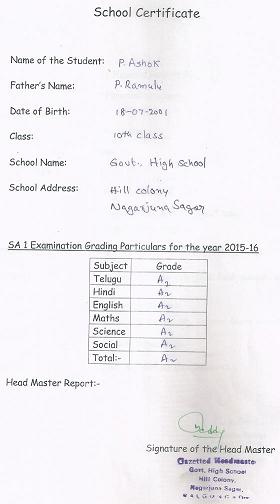 School Certificate
Name of the Student: P. Ashok
Father's Name: P. Ramulu
Date of Birth: 18-07-2001
Class: 10th class
School Name: Govt., High School
School Address: Hill colony
Nagarjuna Sagar
SA 1 Examination Grading Particulars for the year 2015-16
Subject Grade
Telugu A2
Hindi A2
English A2
Maths A2
Science A2
Social A2
Total:- A2
Head Master Report:-
Signature of the Head Master
Gazetted Headmaste
Govt. High School
Hill Colony,
Nagarjuna Sagar,